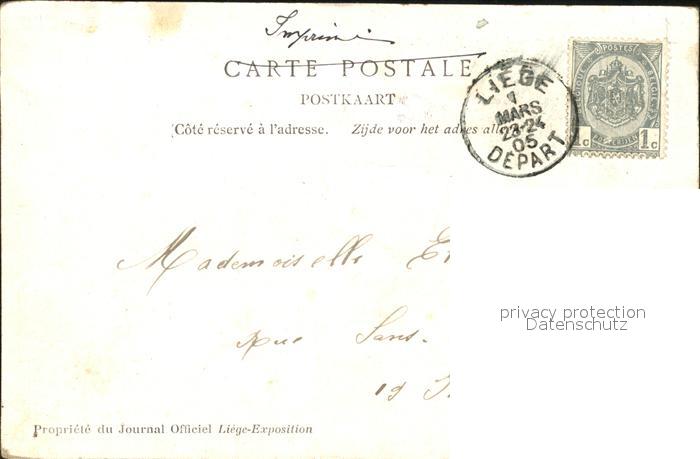 Imprimé
CARTE POSTALE
POSTKAART
Côté réservé à l'adresse. Zijde voor het adres alle
LIÈGE
1
MARS
23-24
05
DÉPART
POSTES
1c 1c
Mademoiselle
Rue Sans
19
privacy protection
Datenschutz
Propriété du Journal Officiel Liége-Exposition